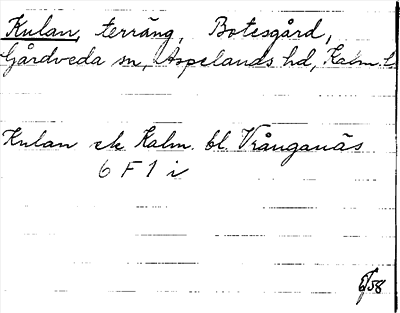 Kulan, terräng, Botesgård,
Gårdveda sn, Aspelands hd, Kalm. l.
Kulan ek Kalm. bl. Vrånganäs
6 F 1 i
5/58